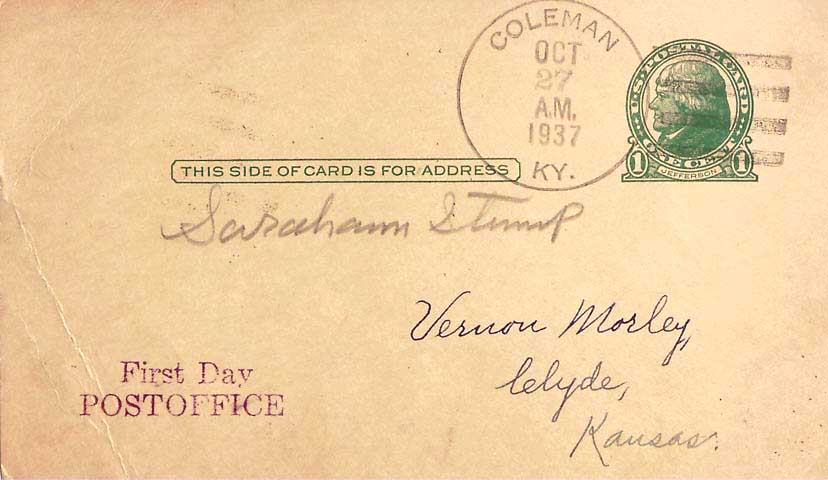 COLEMAN
OCT
27
A.M.
1937
KY.
U.S. POSTAL CARD
1 ONE CENT 1
JEFFERSON
THIS SIDE OF CARD IS FOR ADDRESS
Sarahann Stump
Vernon Morley,
Clyde,
Kansas.
First Day
POSTOFFICE